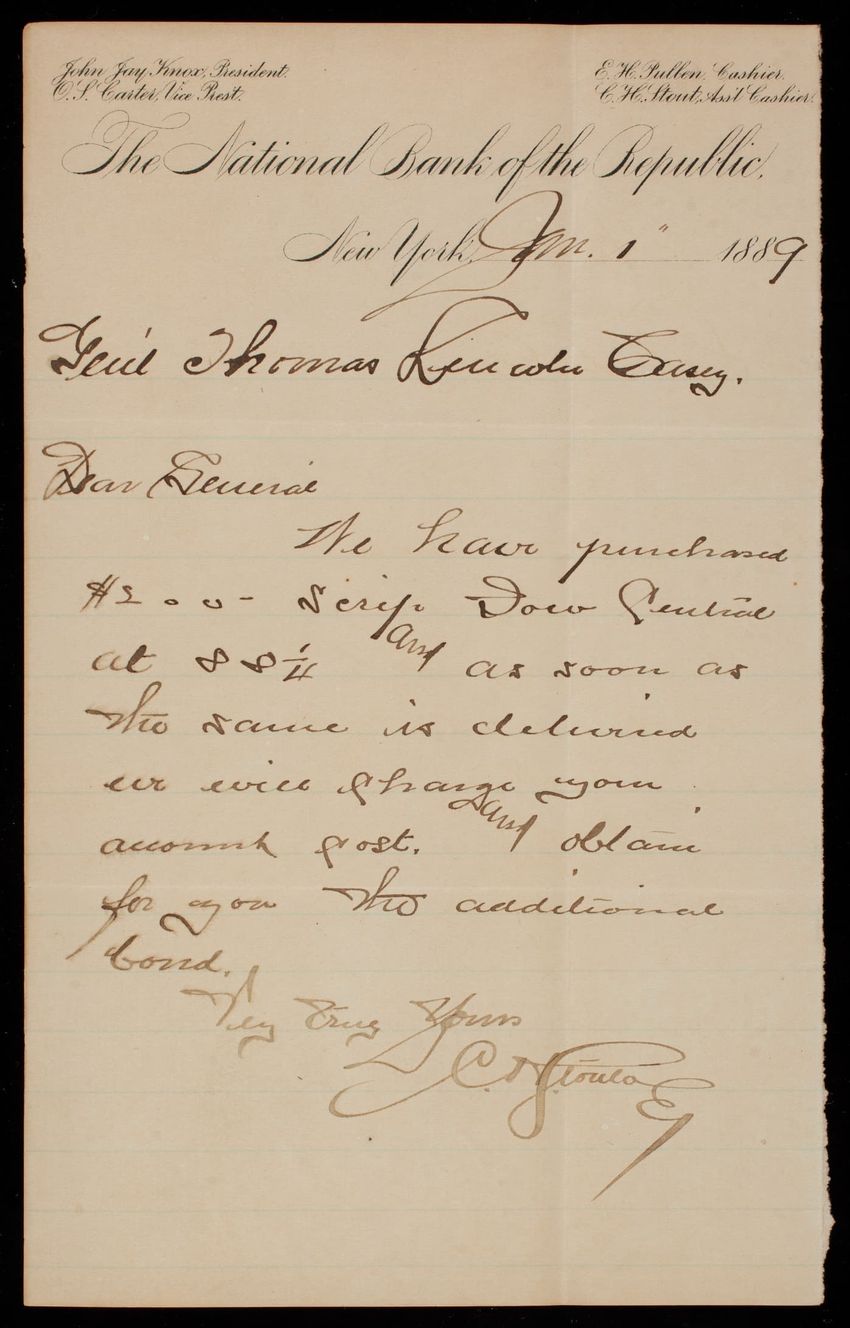 John Jay Knox, President.
O. S. Carter, Vice Prest.
E. H. Pullen, Cashier.
C. H. Stout, Ass't Cashier.
The National Bank of the Republic,
New York, Jan. 1" 1889
Gen'l Thomas Lincoln Casey.
Dear General
We have purchased
$200- Scrip Central
at 88 1/4 and as soon as
the same is delivered
we will charge your
account cost. and obtain
for you the additional
bond.
Very Truly Yours
C H Stout